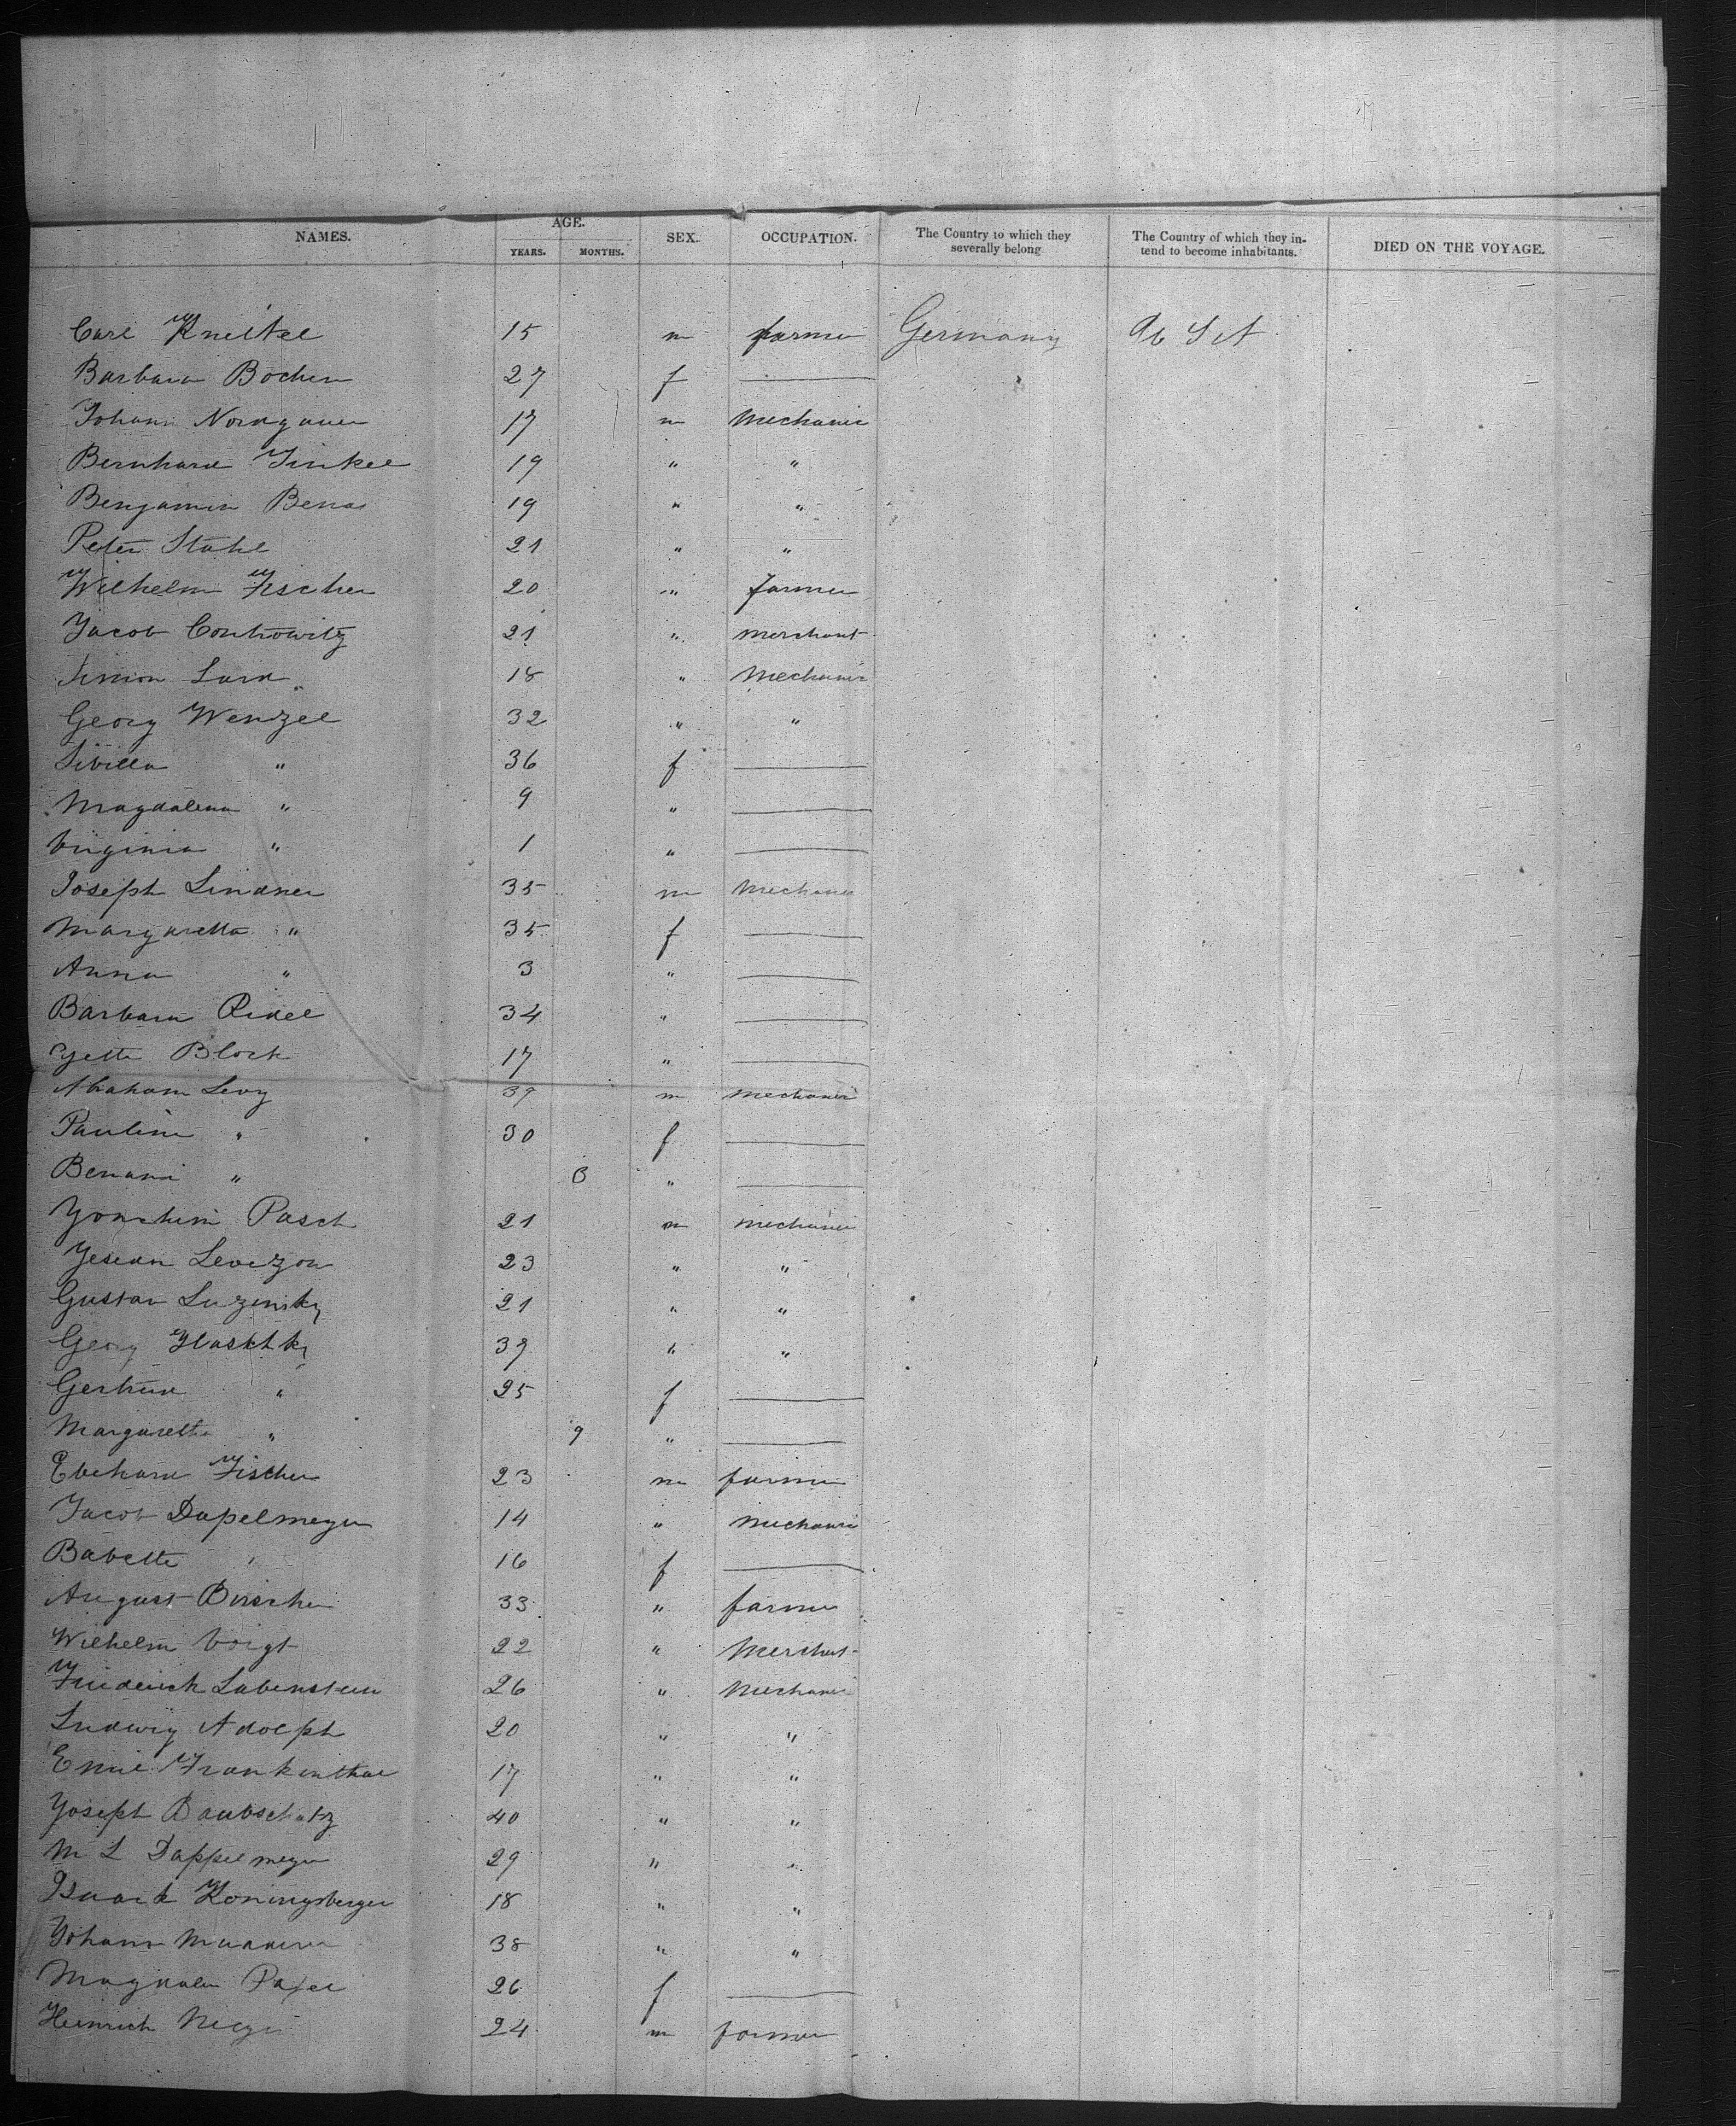 NAMES. AGE. YEARS. MONTHS. SEX. OCCUPATION. The Country to which they severally belong The Country of which they intend to become inhabitants. DIED ON THE VOYAGE.
Carl Kneitel 15 m farmer Germany
Barbara Bocher 27 f
Johann 17 m Mechanic
Bernhard Finkel 19 " "
Benjamin Benas 19 " "
Peter Stahl 21 " "
Wilhelm Fischer 20 " Farmer
Jacob 21 " merchant
Simon 18 " Mechanic
Georg Wenzel 32 " "
Sibilla " 36 f
Magdalena " 9 "
Virginia " 1 "
Joseph Lindner 35 m Mechanic
Margaretta " 35 f
Anna " 3 "
Barbara Ridel 34 "
Yette Block 17 "
Abraham Levy 39 m mechanic
Pauline " 30 f
" "
Pasch 21 m mechanic
23 " "
Gustav 21 " "
Georg 39 " "
Gertrud " 25 f
Margaretha " 9 "
Eberhard Fischer 23 m farmer
Jacob Dapelmeyer 14 " mechanic
Babette " 16 f
August 33 " farmer
Wilhelm Voigt 22 " Merchant
Friederich Labenstein 26 " Mechanic
Ludwig Adolph 20 " "
Emil Frankenthal 17 " "
Joseph Baubschatz 40 " "
M L Dappelmeyer 29 " "
Isaack Koningsberger 18 " "
Johann 38 " "
26 f
Heinrich 24 m farmer